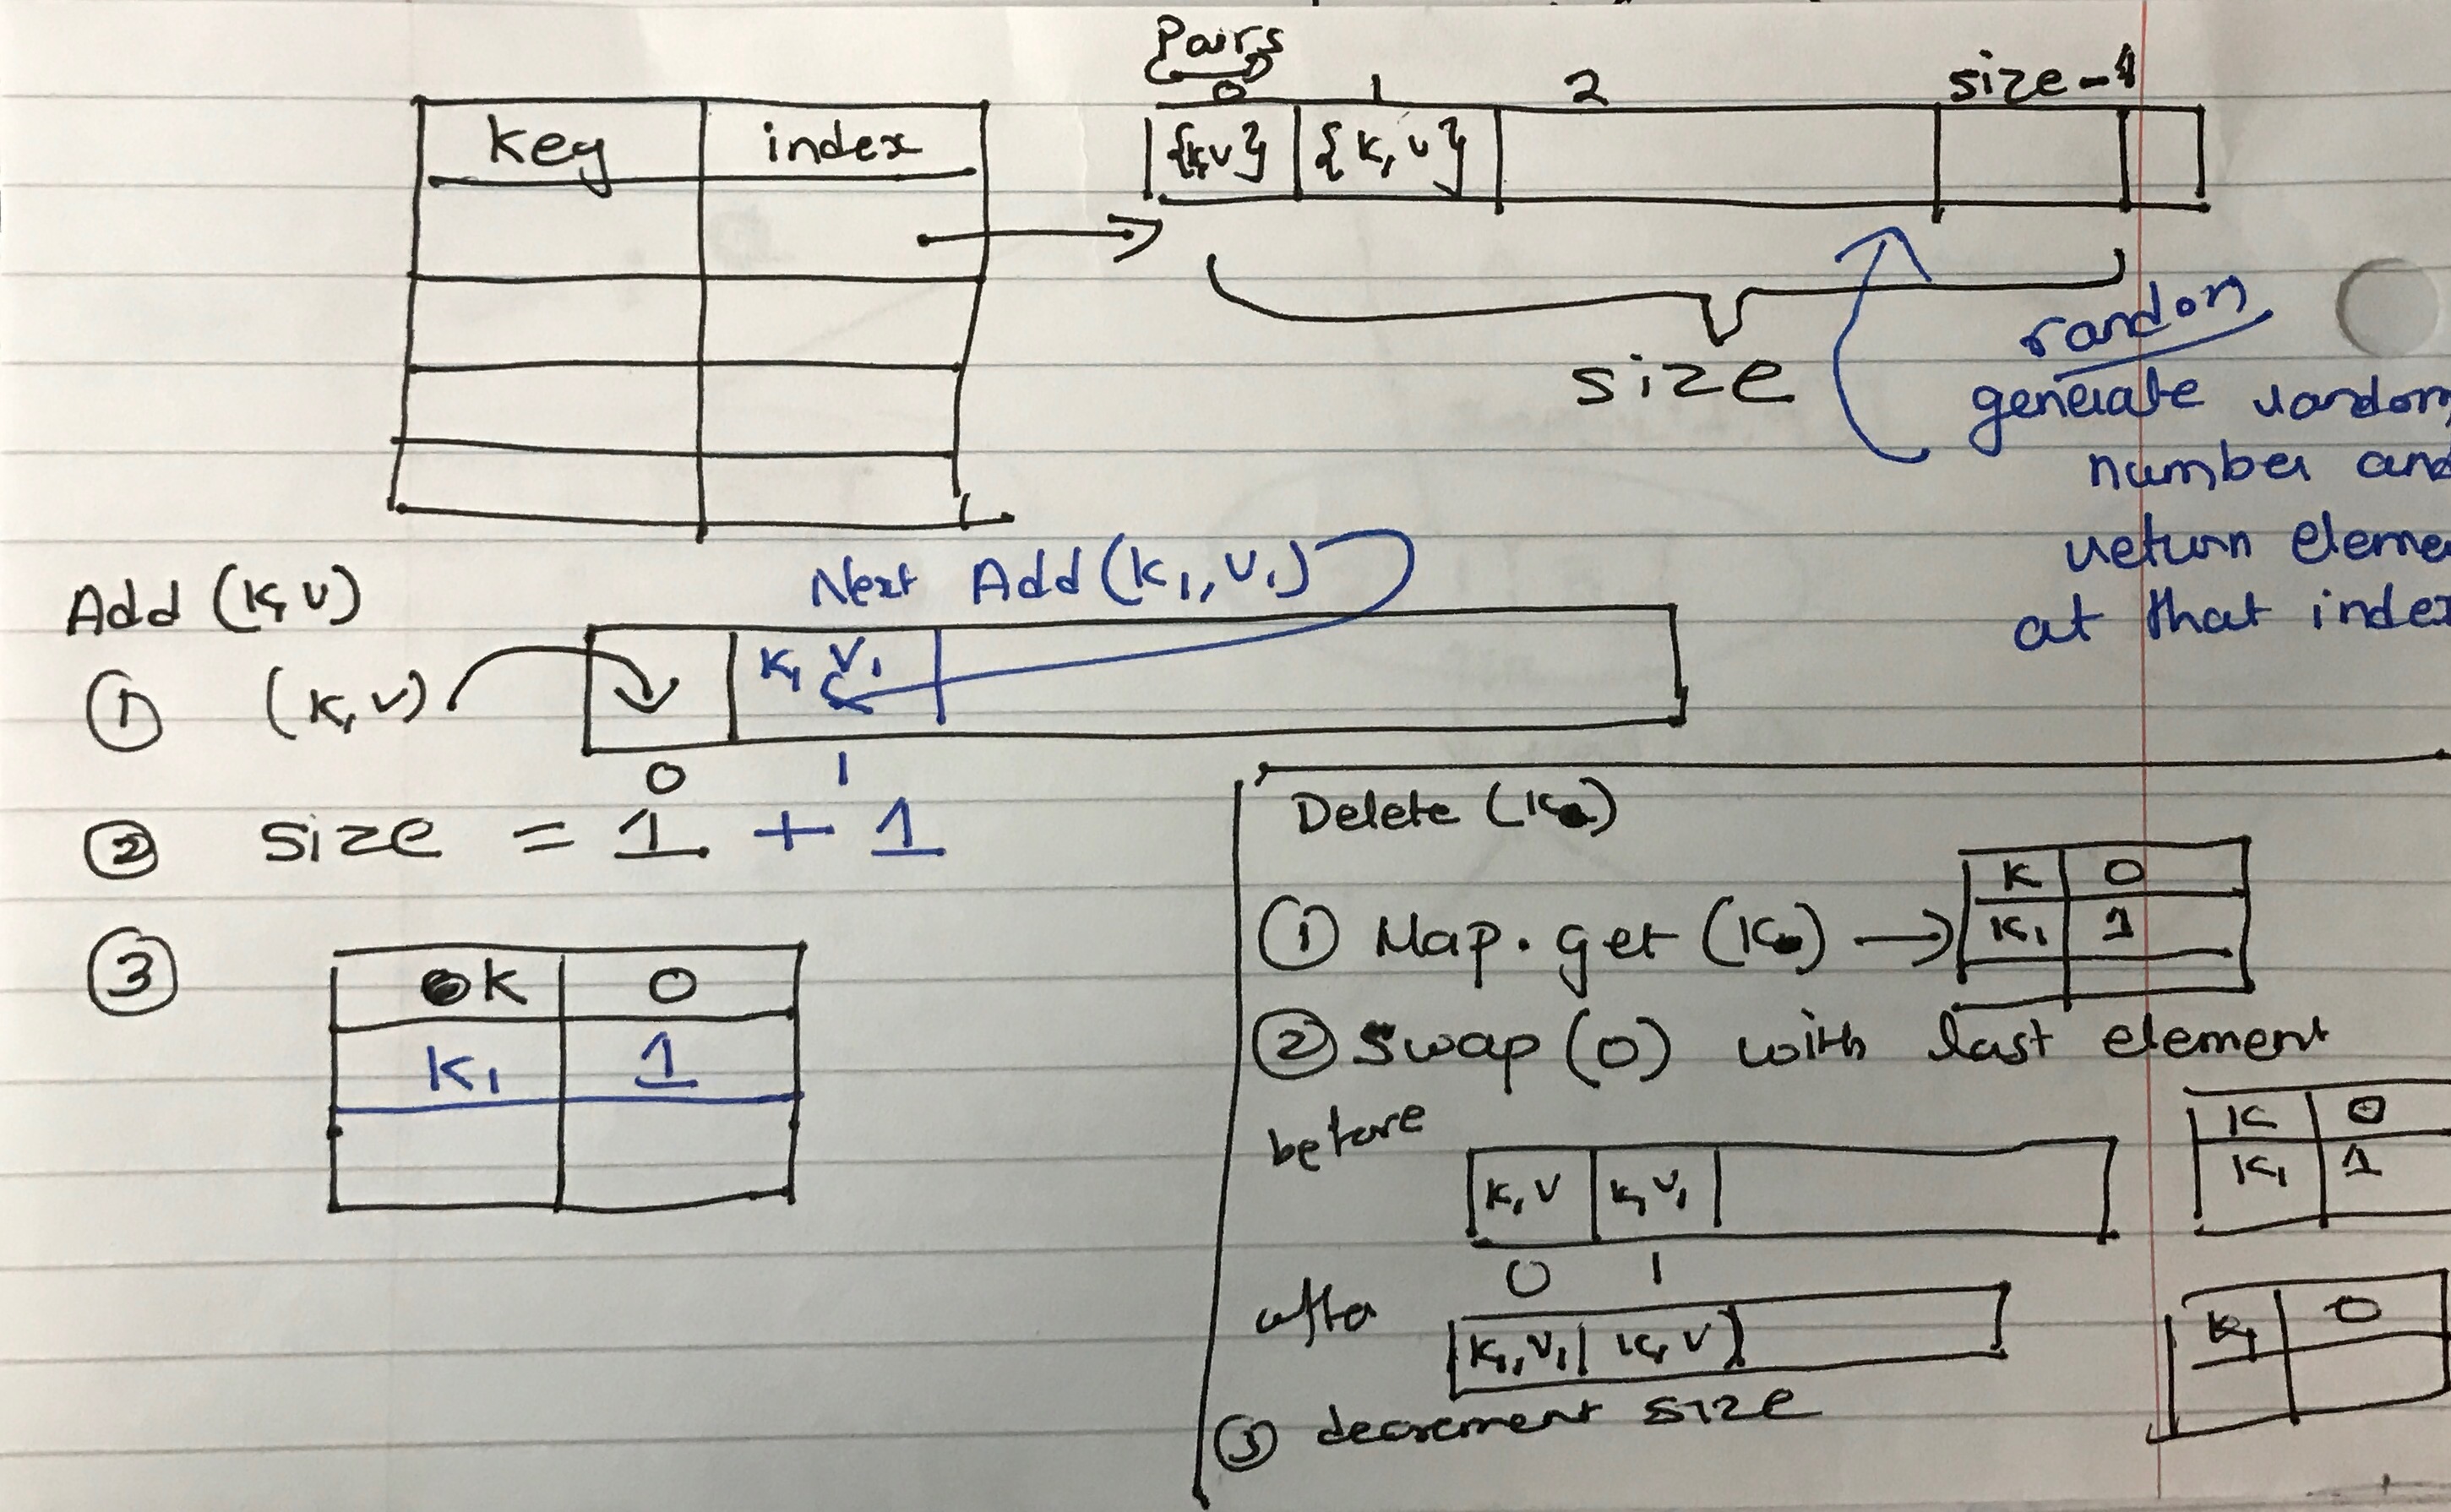 Pairs
0 1 2 size-1
key index
{k,v} {k, v}
size
random
generate random
number and
return eleme
at that index
Add (k,v)
Next Add (k1, v1)
① (k, v)
k1 v1
0 1
② size = 1 + 1
③
k 0
k1 1
Delete (k)
① Map.get (k) →
k 0
k1 1
② Swap (0) with last element
before
k, v k1 v1
0 1
k 0
k1 1
after
k1, v1 k, v
k1 0
③ decrement size